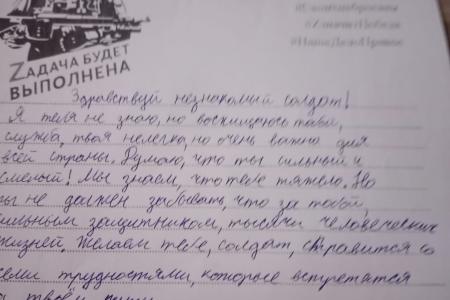 ZАДАЧА БУДЕТ
ВЫПОЛНЕНА
#СвоихНеБросаем
#ZначитПобеда
#НашеДелоПравое
Здравствуй незнакомый солдат!
Я тебя не знаю, но восхищаюсь тобой,
служба, твоя нелегка, но очень важно для
всей страны. Думаю, что ты сильный и
смелый! Мы знаем, что тебе тяжело. Но
ты не должен забывать, что за тобой,
сильным защитником, тысячи человеческих
жизней. Желаем тебе, солдат, справится со
всеми трудностями, которые встретятся
твоём